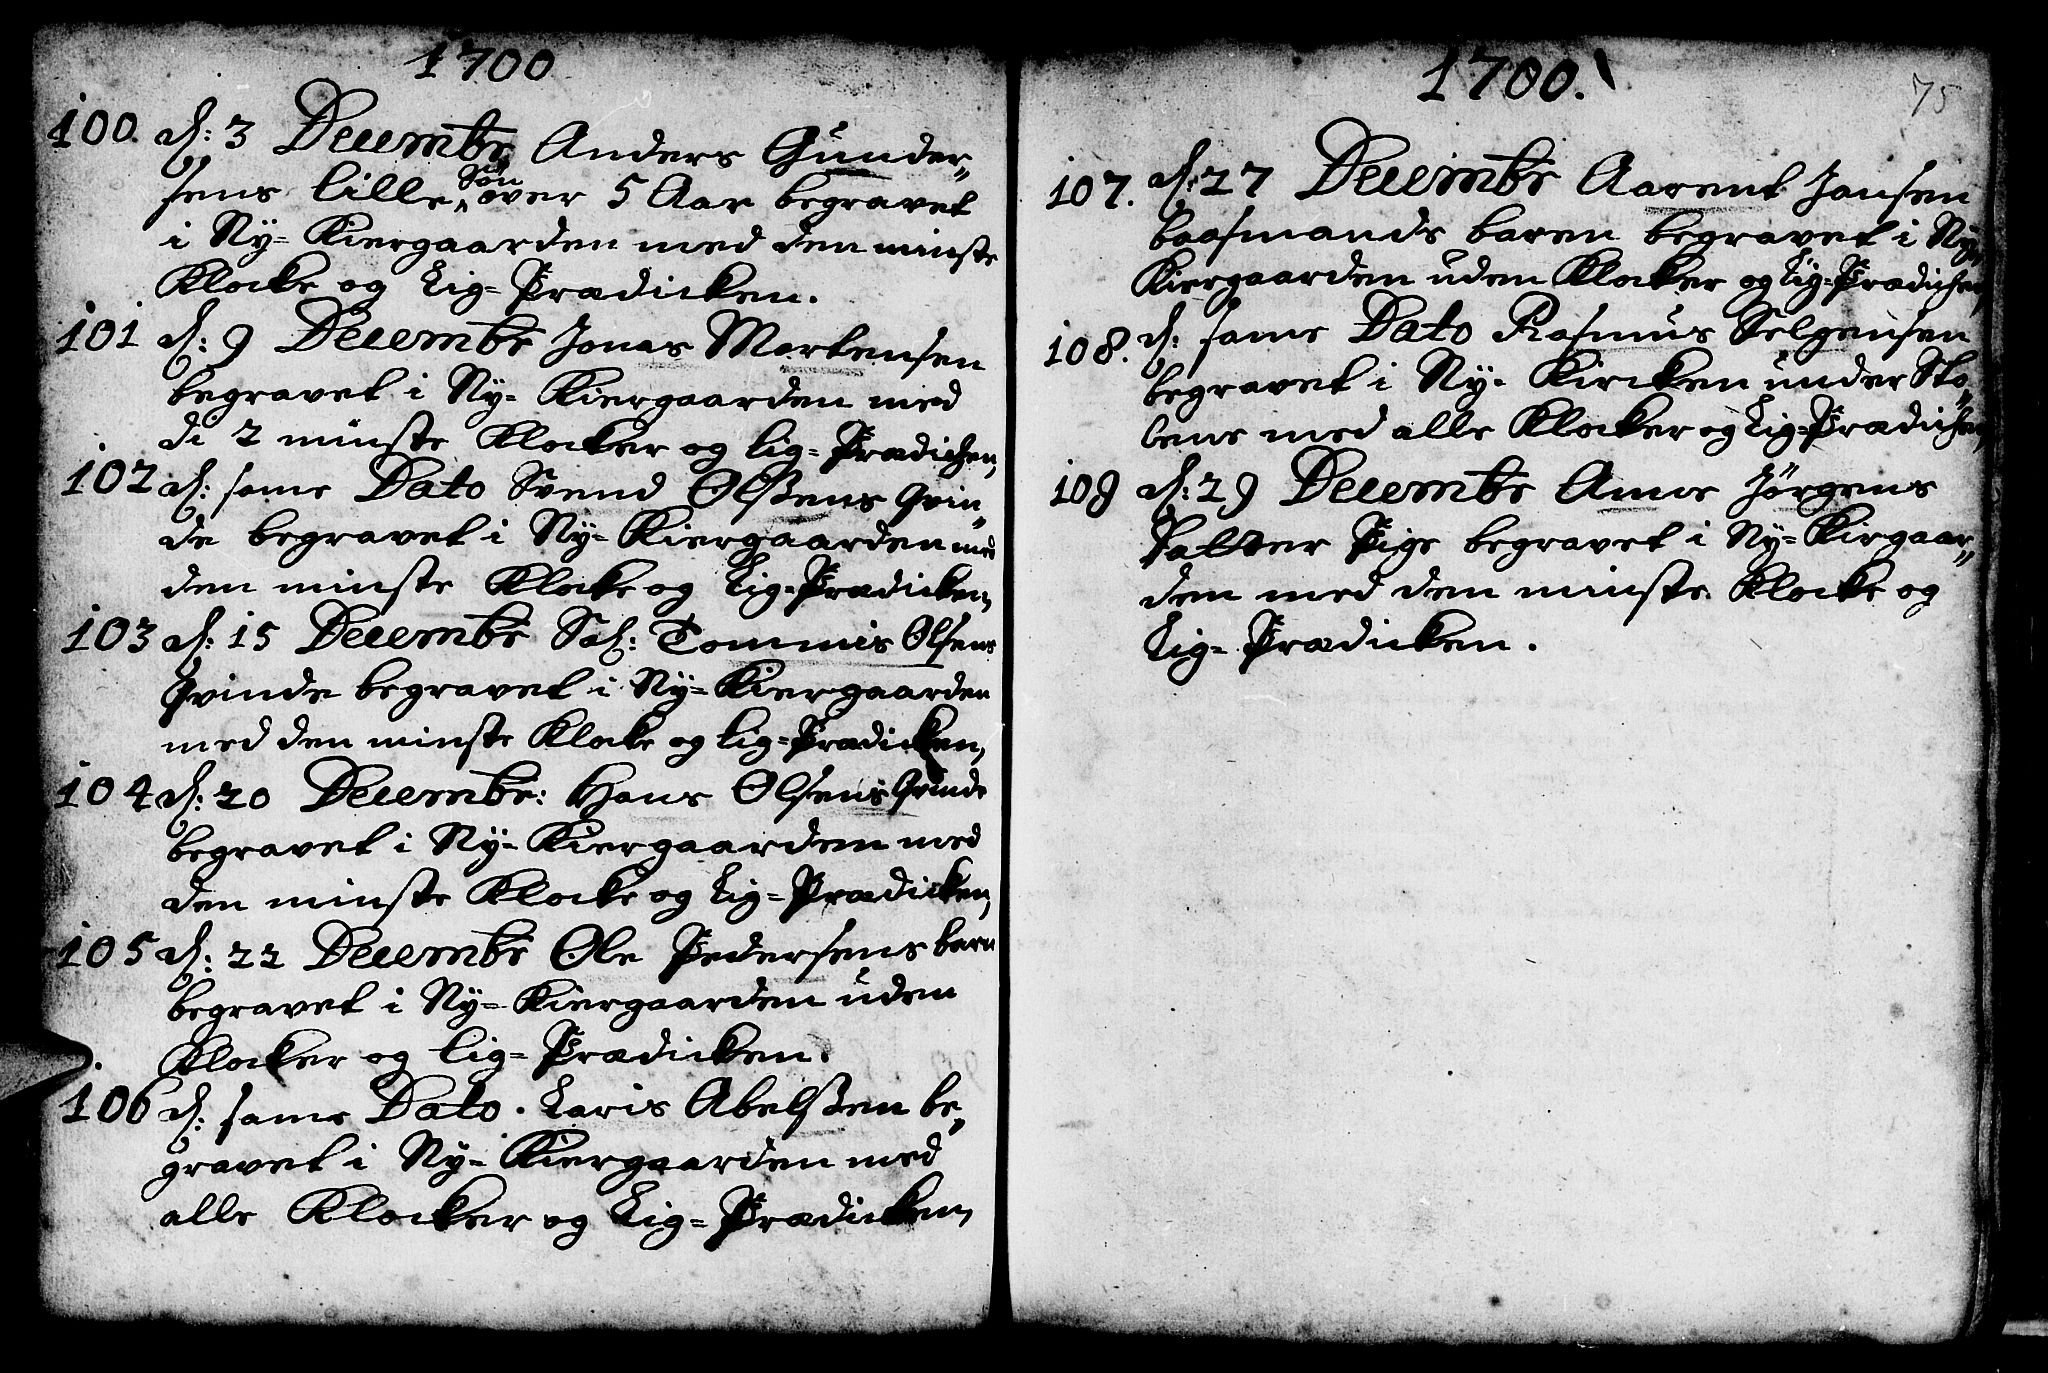 1700
100. d: 3 Decembr Anders Gunder„
sens lille Søn over 5 Aar begravet
i Ny= Kiergaarden med den minste
Klocke og Lig= Prædicken.
101 d: 9 Decembr Jonas Mortensen
begravet i Ny= Kiergaarden med
di 2 minste Klocker og lig= Prædichen,
102 d: same Dato Svend Olßens Qvin„
de begravet i Ny= Kiergaarden med
den minste Klocke og Lig= Prædicken,
103 d: 15 Decembr Sal: Tommis Olsens
Qvinde begravet i Ny= Kiergaarden
med den minste Klocke og lig= Prædicken,
104 d: 20 Decembr: Hans Olsens Qvinde
begravet i Ny= Kiergaarden med
den minste Klocke og Lig= Prædicken,
105 d: 22 Decembr Ole Pedersens barn
begravet i Ny= Kiergaarden uden
Klocker og lig= Prædicken.
106 d: same Dato. Laris Abelßen be„
gravet i Ny= Kiergaarden med
alle Klocker og Lig= Prædicken,
1700.
75
107. d: 27 Decembr Aarent Jansen
baasmands baren begravet i Ny„
Kiergaarden uden Klocker og Lig= Prædichen,
108. d: same Dato Rasmus Selgensen
begravet i Ny= Kircken under Sto„
lene med alle Klocker og Lig= Prædichen,
109 d: 29 Decembr Anne Jørgens
Datter Pige begravet i Ny= Kirgaar„
den med den minste Klocke og
Lig= Prædicken.